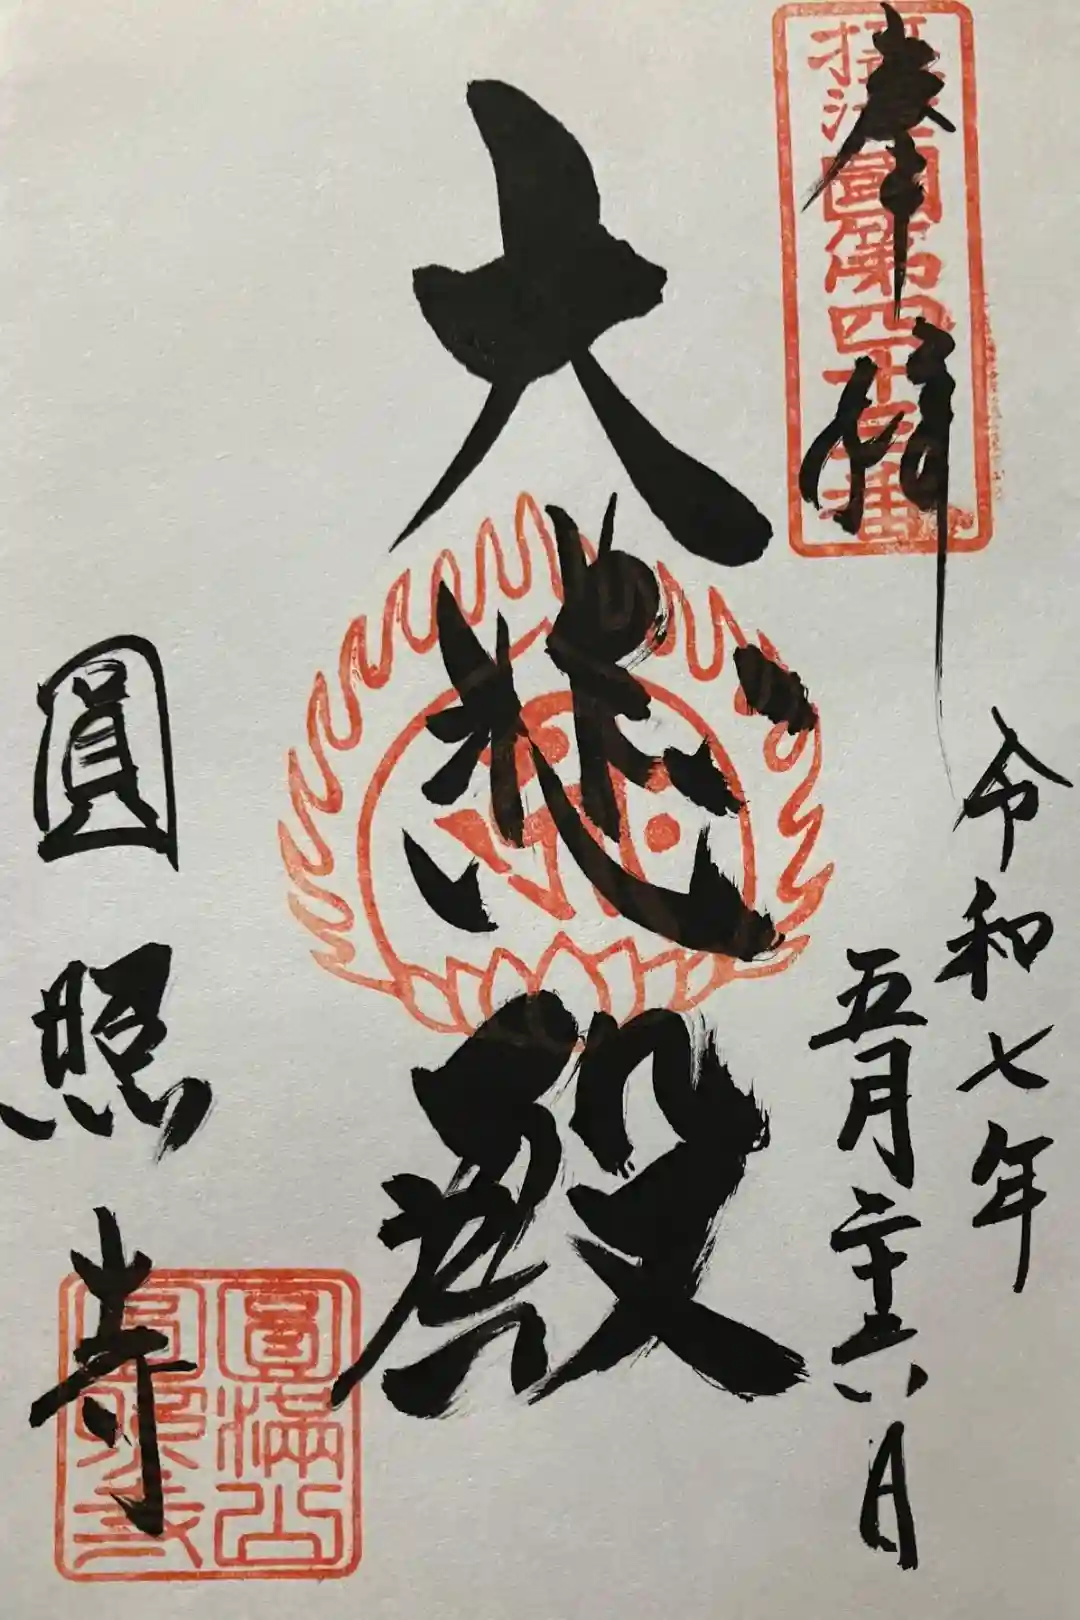 攝津國第四十三番
奉拝
令和七年
五月二十六日
大悲殿
圓照寺
圓滿山
圓照寺